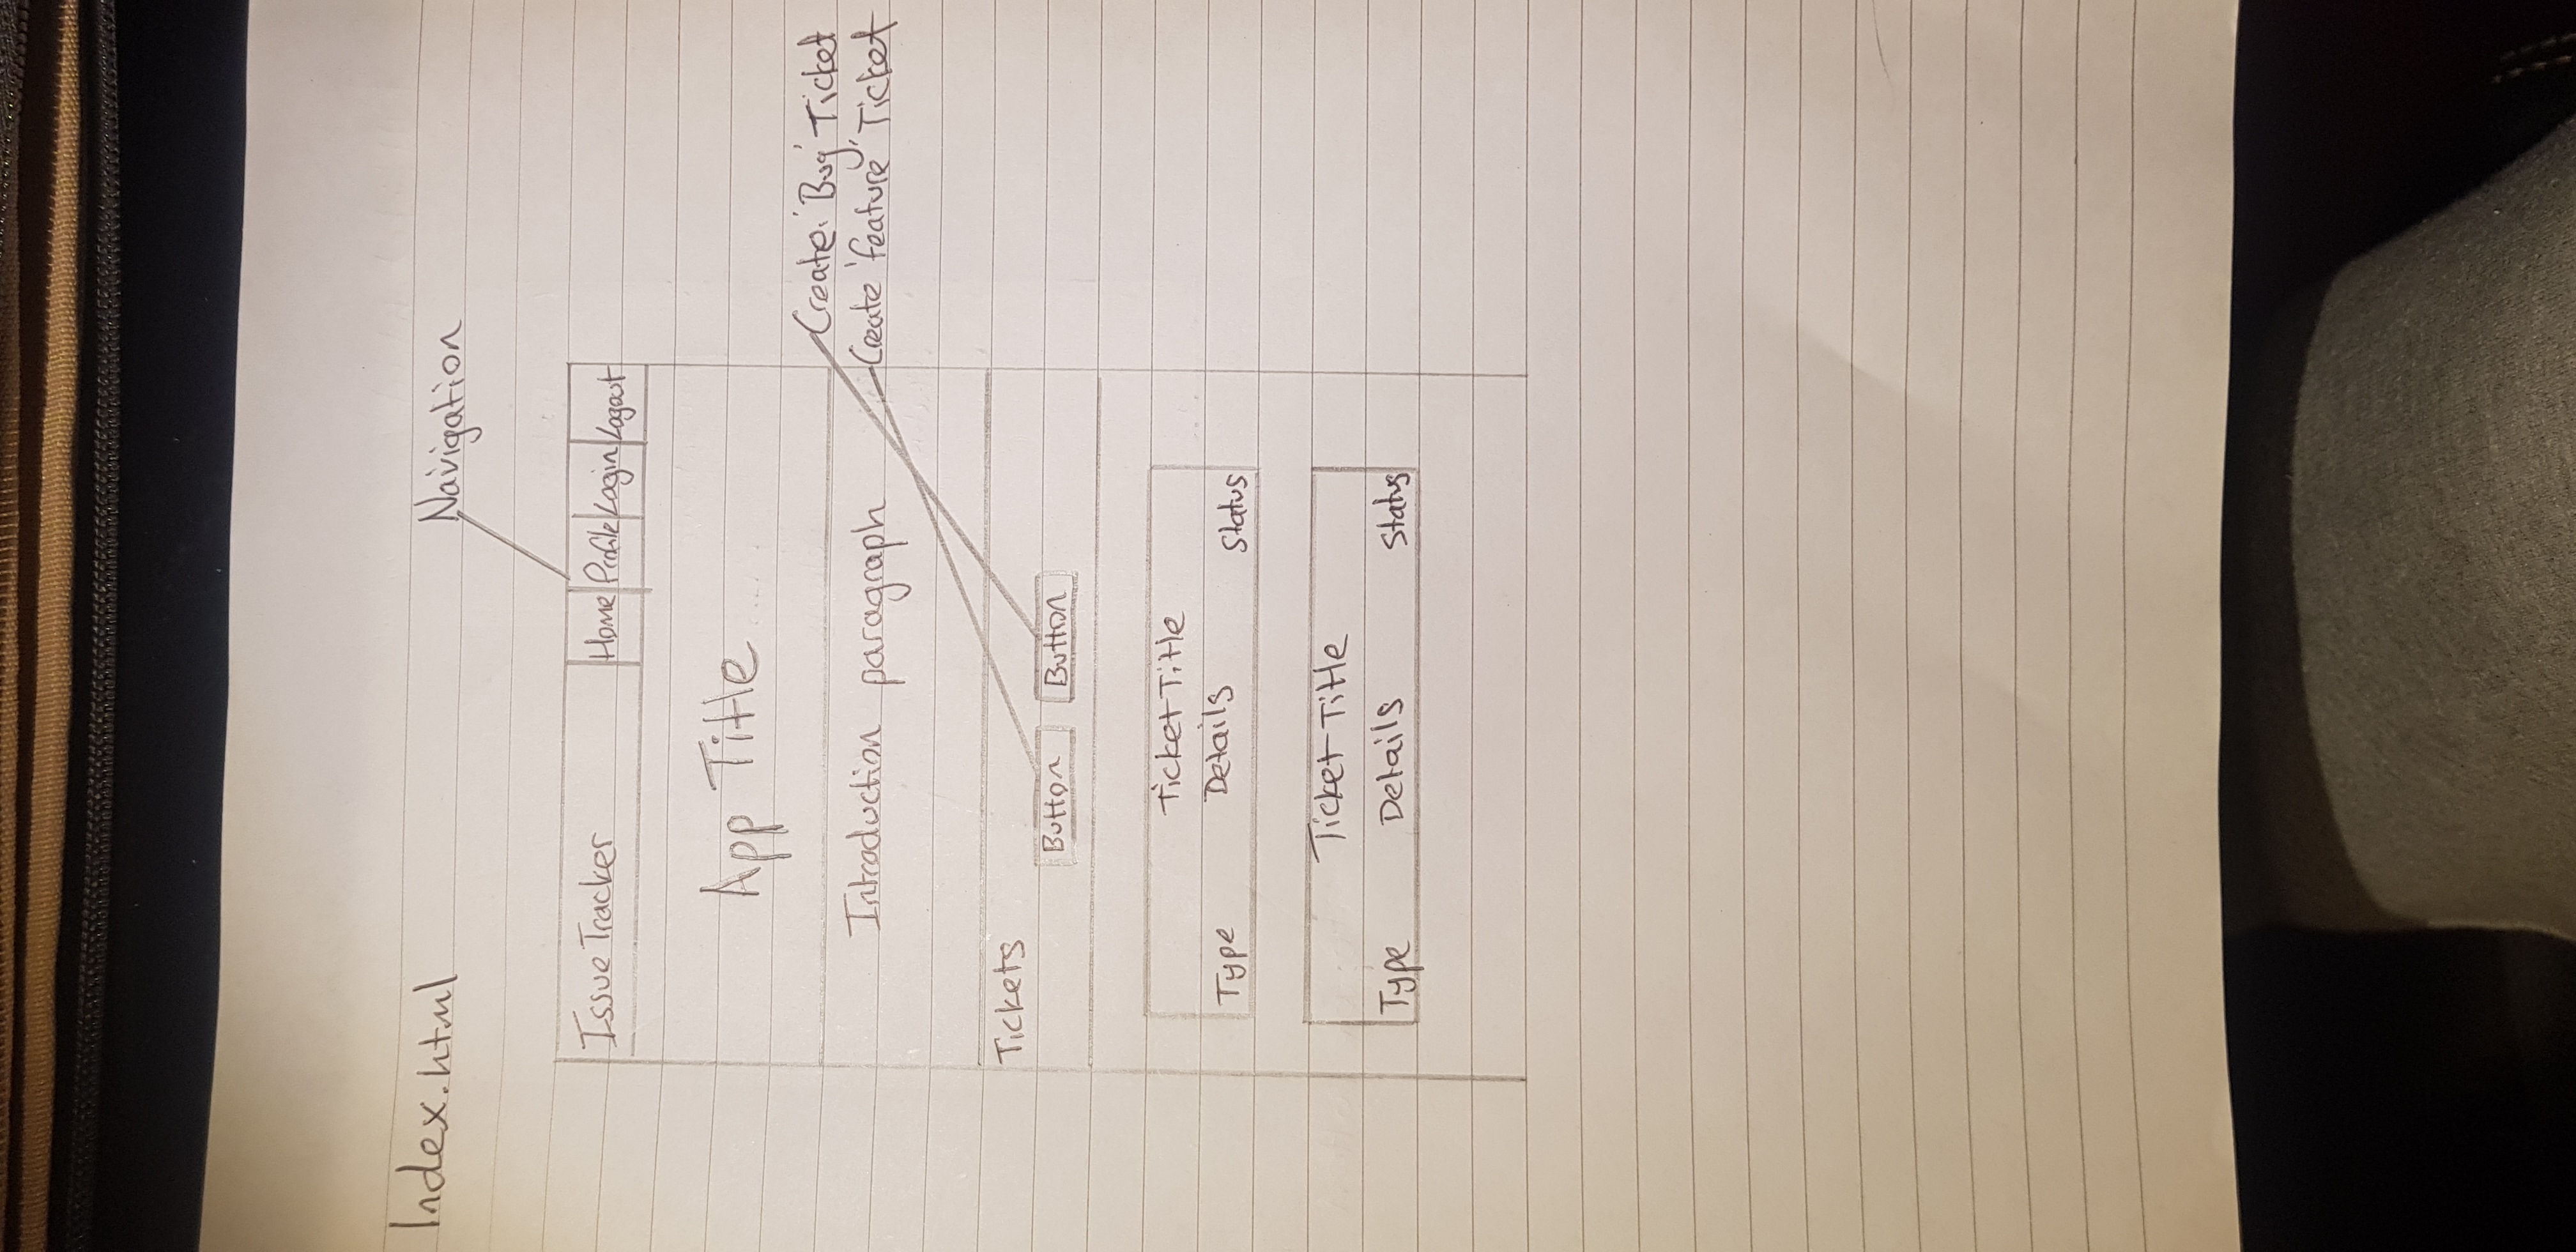 Index.html
Navigation
Issue Tracker Home Profile Login Logout
App Title
Create 'Bug' Ticket
Introduction paragraph
Create 'feature' Ticket
Tickets
Button Button
Ticket Title
Type Details Status
Ticket Title
Type Details Status